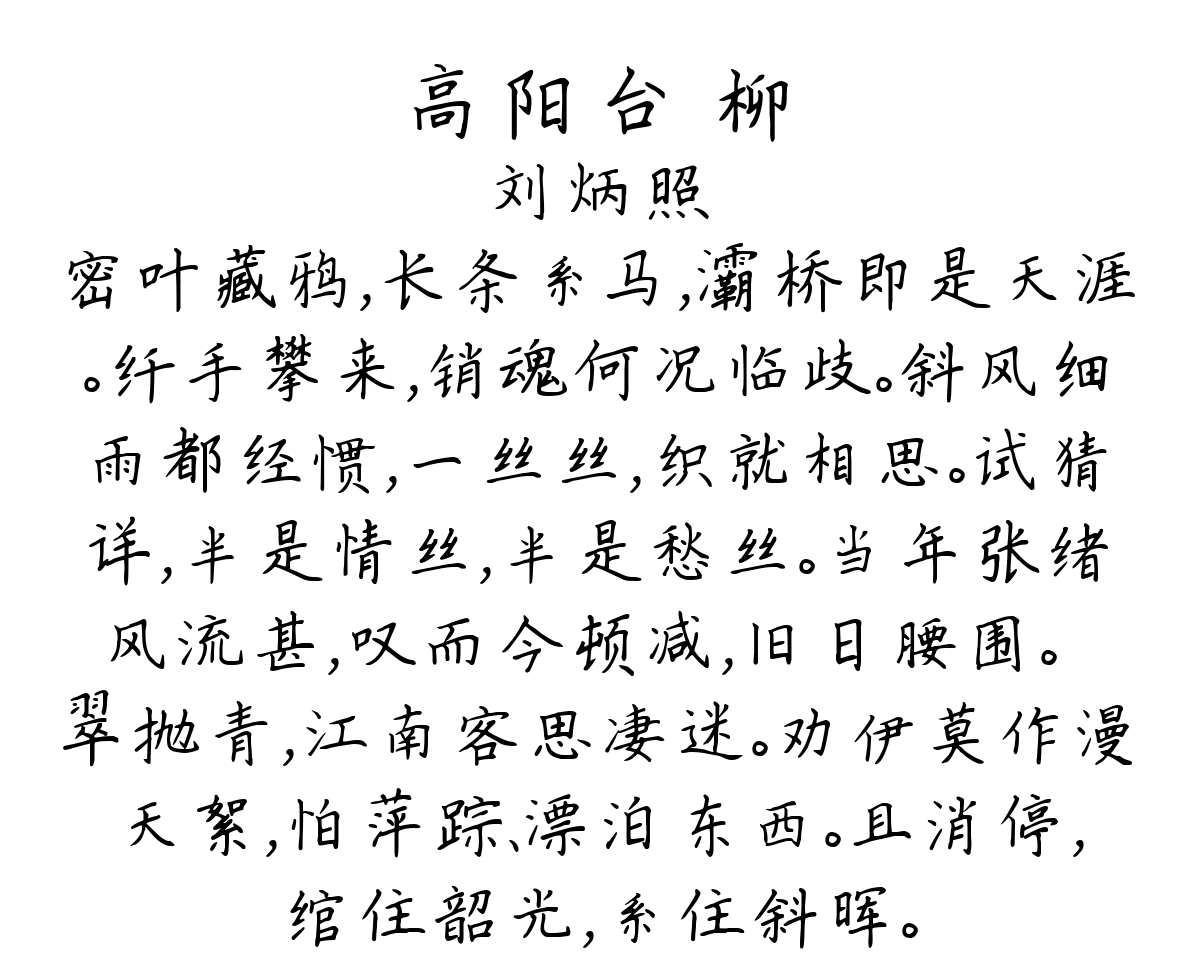 高阳台 柳
刘炳照
密叶藏鸦,长条系马,灞桥即是天涯
。纤手攀来,销魂何况临歧。斜风细
雨都经惯,一丝丝,织就相思。试猜
详,半是情丝,半是愁丝。当年张绪
风流甚,叹而今顿减,旧日腰围。
翠抛青,江南客思凄迷。劝伊莫作漫
天絮,怕萍踪、漂泊东西。且消停,
绾住韶光,系住斜晖。